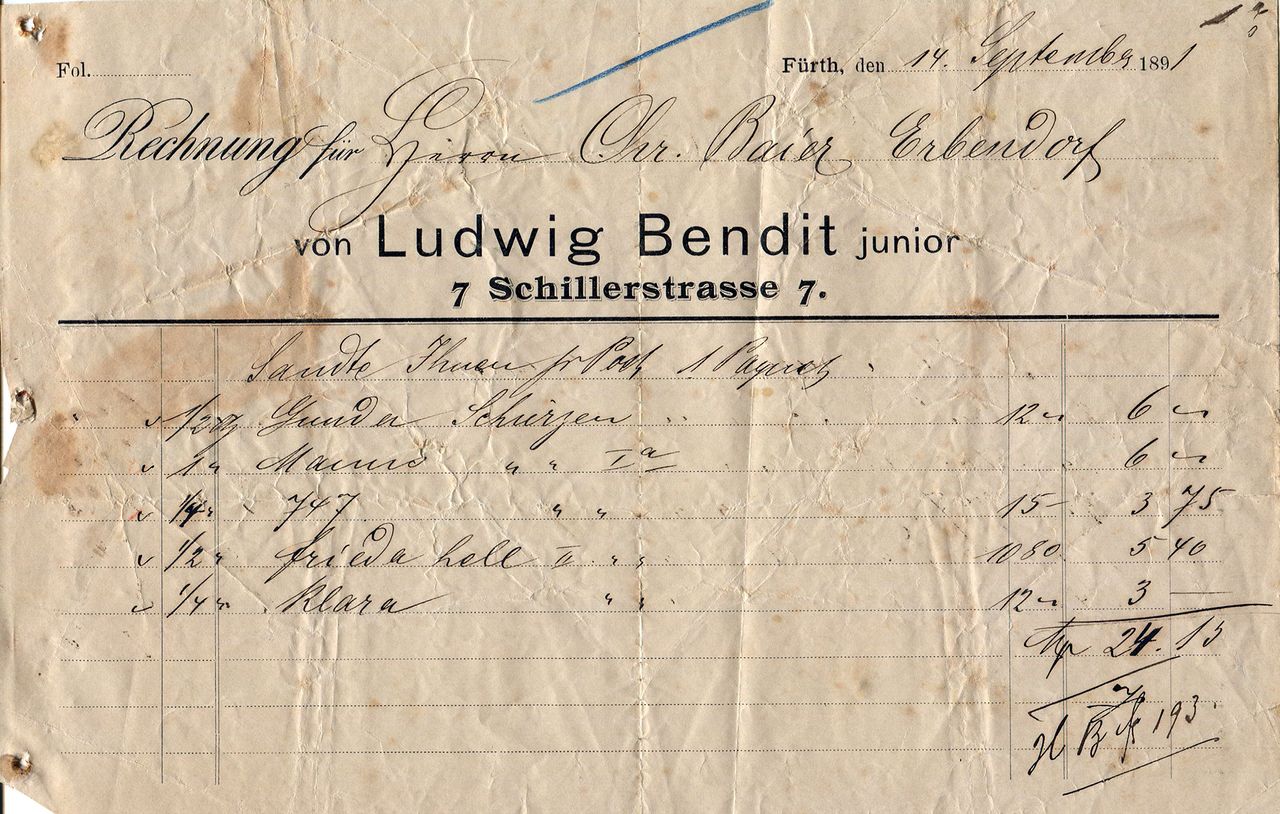 Fol.
Fürth, den 14. September 1891
Rechnung für Herrn Chr. Baier Erbendorf
von Ludwig Bendit junior
7 Schillerstrasse 7.
Sandte Ihnen pr Post 1 Paquet
1/2 Dz Gunda Schürzen 12 " 6 "
1 " " " Ia 6 "
1/4 " 747 " " 15 - 3 75
1/2 " Frieda hell II " " 10 80 5 40
1/4 " Klara " " 12 " 3 —
24. 15
193